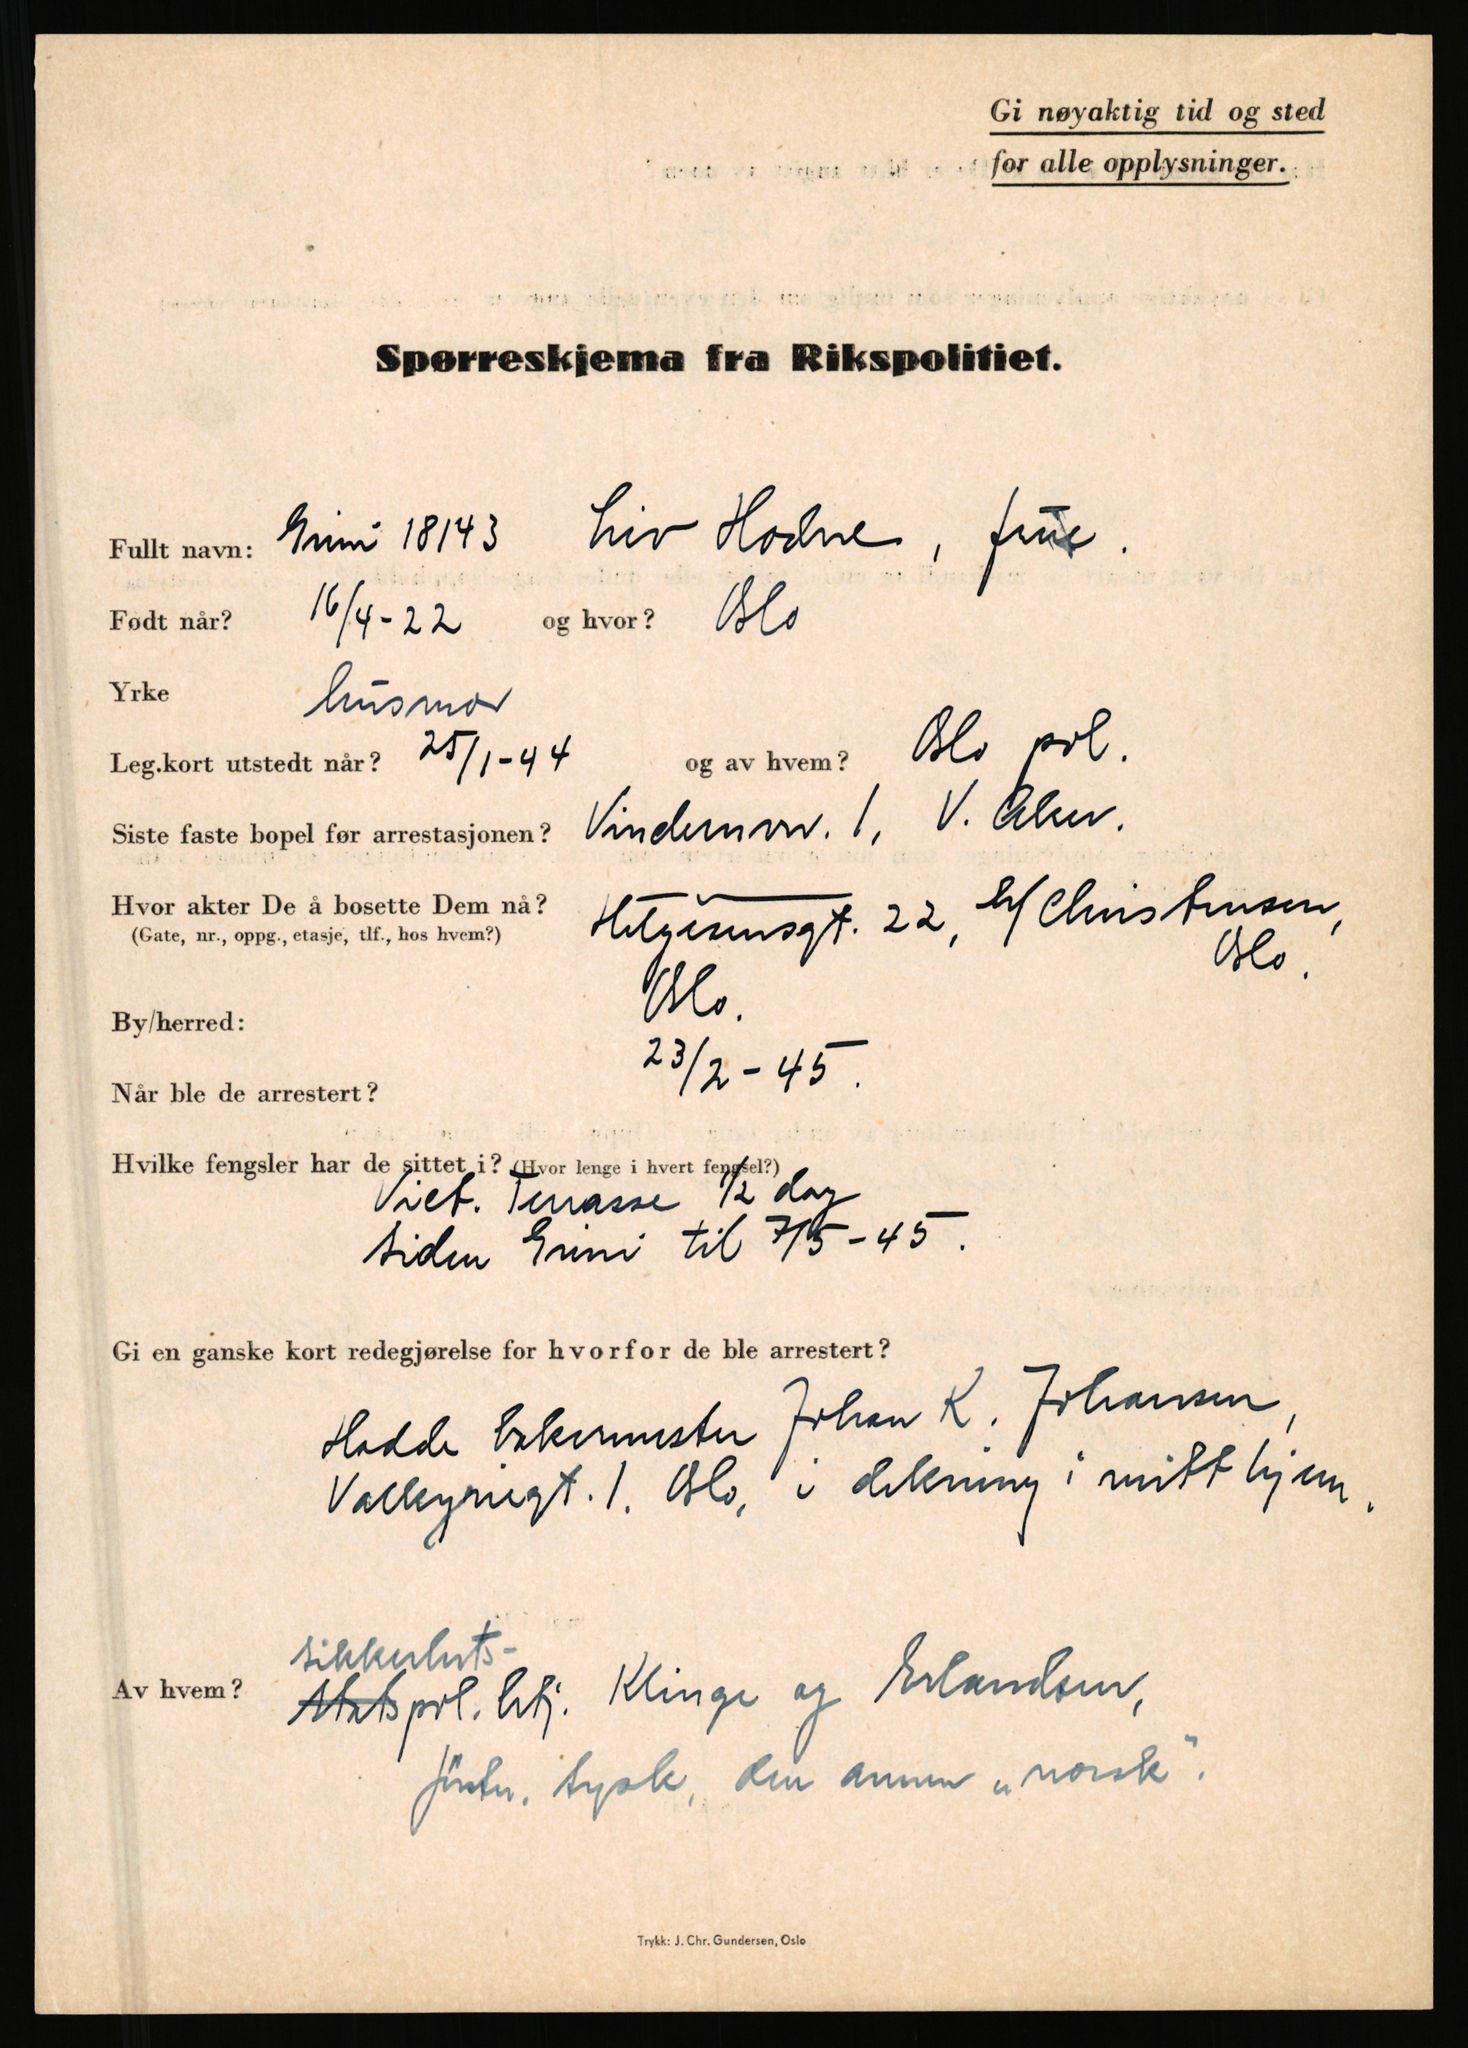 Gi nøyaktig tid og sted
for alle opplysninger.
Spørreskjema fra Rikspolitiet.
Fullt navn: Grini 18143 Liv Hodne, frue.
Født når? 16/4-22 og hvor? Oslo
Yrke husmor
Leg.kort utstedt når? 25/1-44 og av hvem? Oslo pol.
Siste faste bopel før arrestasjonen? Vindernvn. 1, V. Aker.
Hvor akter De å bosette Dem nå? Helgesensgt. 22, b/ Christensen,
(Gate, nr., oppg., etasje, tlf., hos hvem?) Oslo.
By/herred: Oslo.
Når ble de arrestert? 23/2-45.
Hvilke fengsler har de sittet i? (Hvor lenge i hvert fengsel?)
Vict. Terrasse 1/2 dag
siden Grini til 7/5-45.
Gi en ganske kort redegjørelse for hvorfor de ble arrestert?
Hadde bakermester Johan K. Johansen,
Valkyriegt. 1. Oslo, i dekning i mitt hjem.
sikkerhets-
Av hvem? Statspol. btj. Klinge og Erlandsen,
først. tysk, den annen „norsk".
Trykk: J. Chr. Gundersen, Oslo